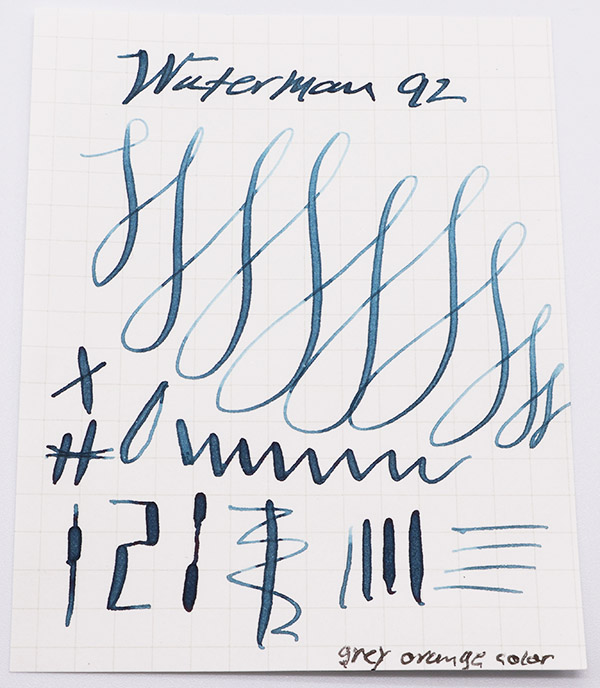 Waterman 92
grey orange color